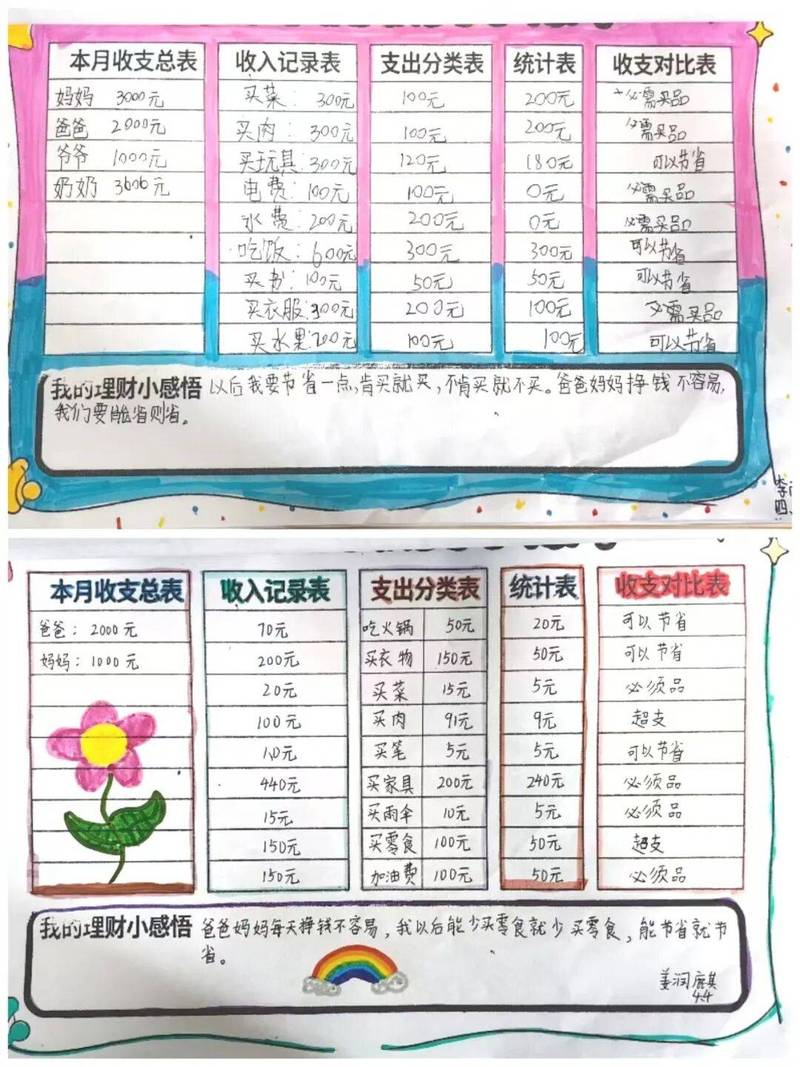 本月收支总表 收入记录表 支出分类表 统计表 收支对比表
妈妈 3000元 买菜: 300元 100元 200元 必需买品
爸爸 2000元 买肉: 300元 100元 200元 必需买品
爷爷 1000元 买玩具: 300元 120元 180元 可以节省
奶奶 3606元 电费: 100元 100元 0元 必需买品
水费: 200元 200元 0元 必需买品
吃饭: 600元 300元 300元 可以节省
买书: 100元 50元 50元 可以节省
买衣服: 300元 200元 100元 必需买品
买水果: 200元 100元 100元 可以节省
我的理财小感悟 以后我要节省一点,肯买就买,不肯买就不买。爸爸妈妈挣钱不容易,
我们要能省则省。
本月收支总表 收入记录表 支出分类表 统计表 收支对比表
爸爸: 2000元 70元 吃火锅 50元 20元 可以节省
妈妈: 1000元 200元 买衣物 150元 50元 可以节省
20元 买菜 15元 5元 必须品
100元 买肉 91元 9元 超支
10元 买笔 5元 5元 可以节省
440元 买家具 200元 240元 必须品
15元 买雨伞 10元 5元 必须品
150元 买零食 100元 50元 超支
150元 加油费 100元 50元 必须品
我的理财小感悟 爸爸妈妈每天挣钱不容易,我以后能少买零食就少买零食,能节省就节
省。
姜润麒
4.4